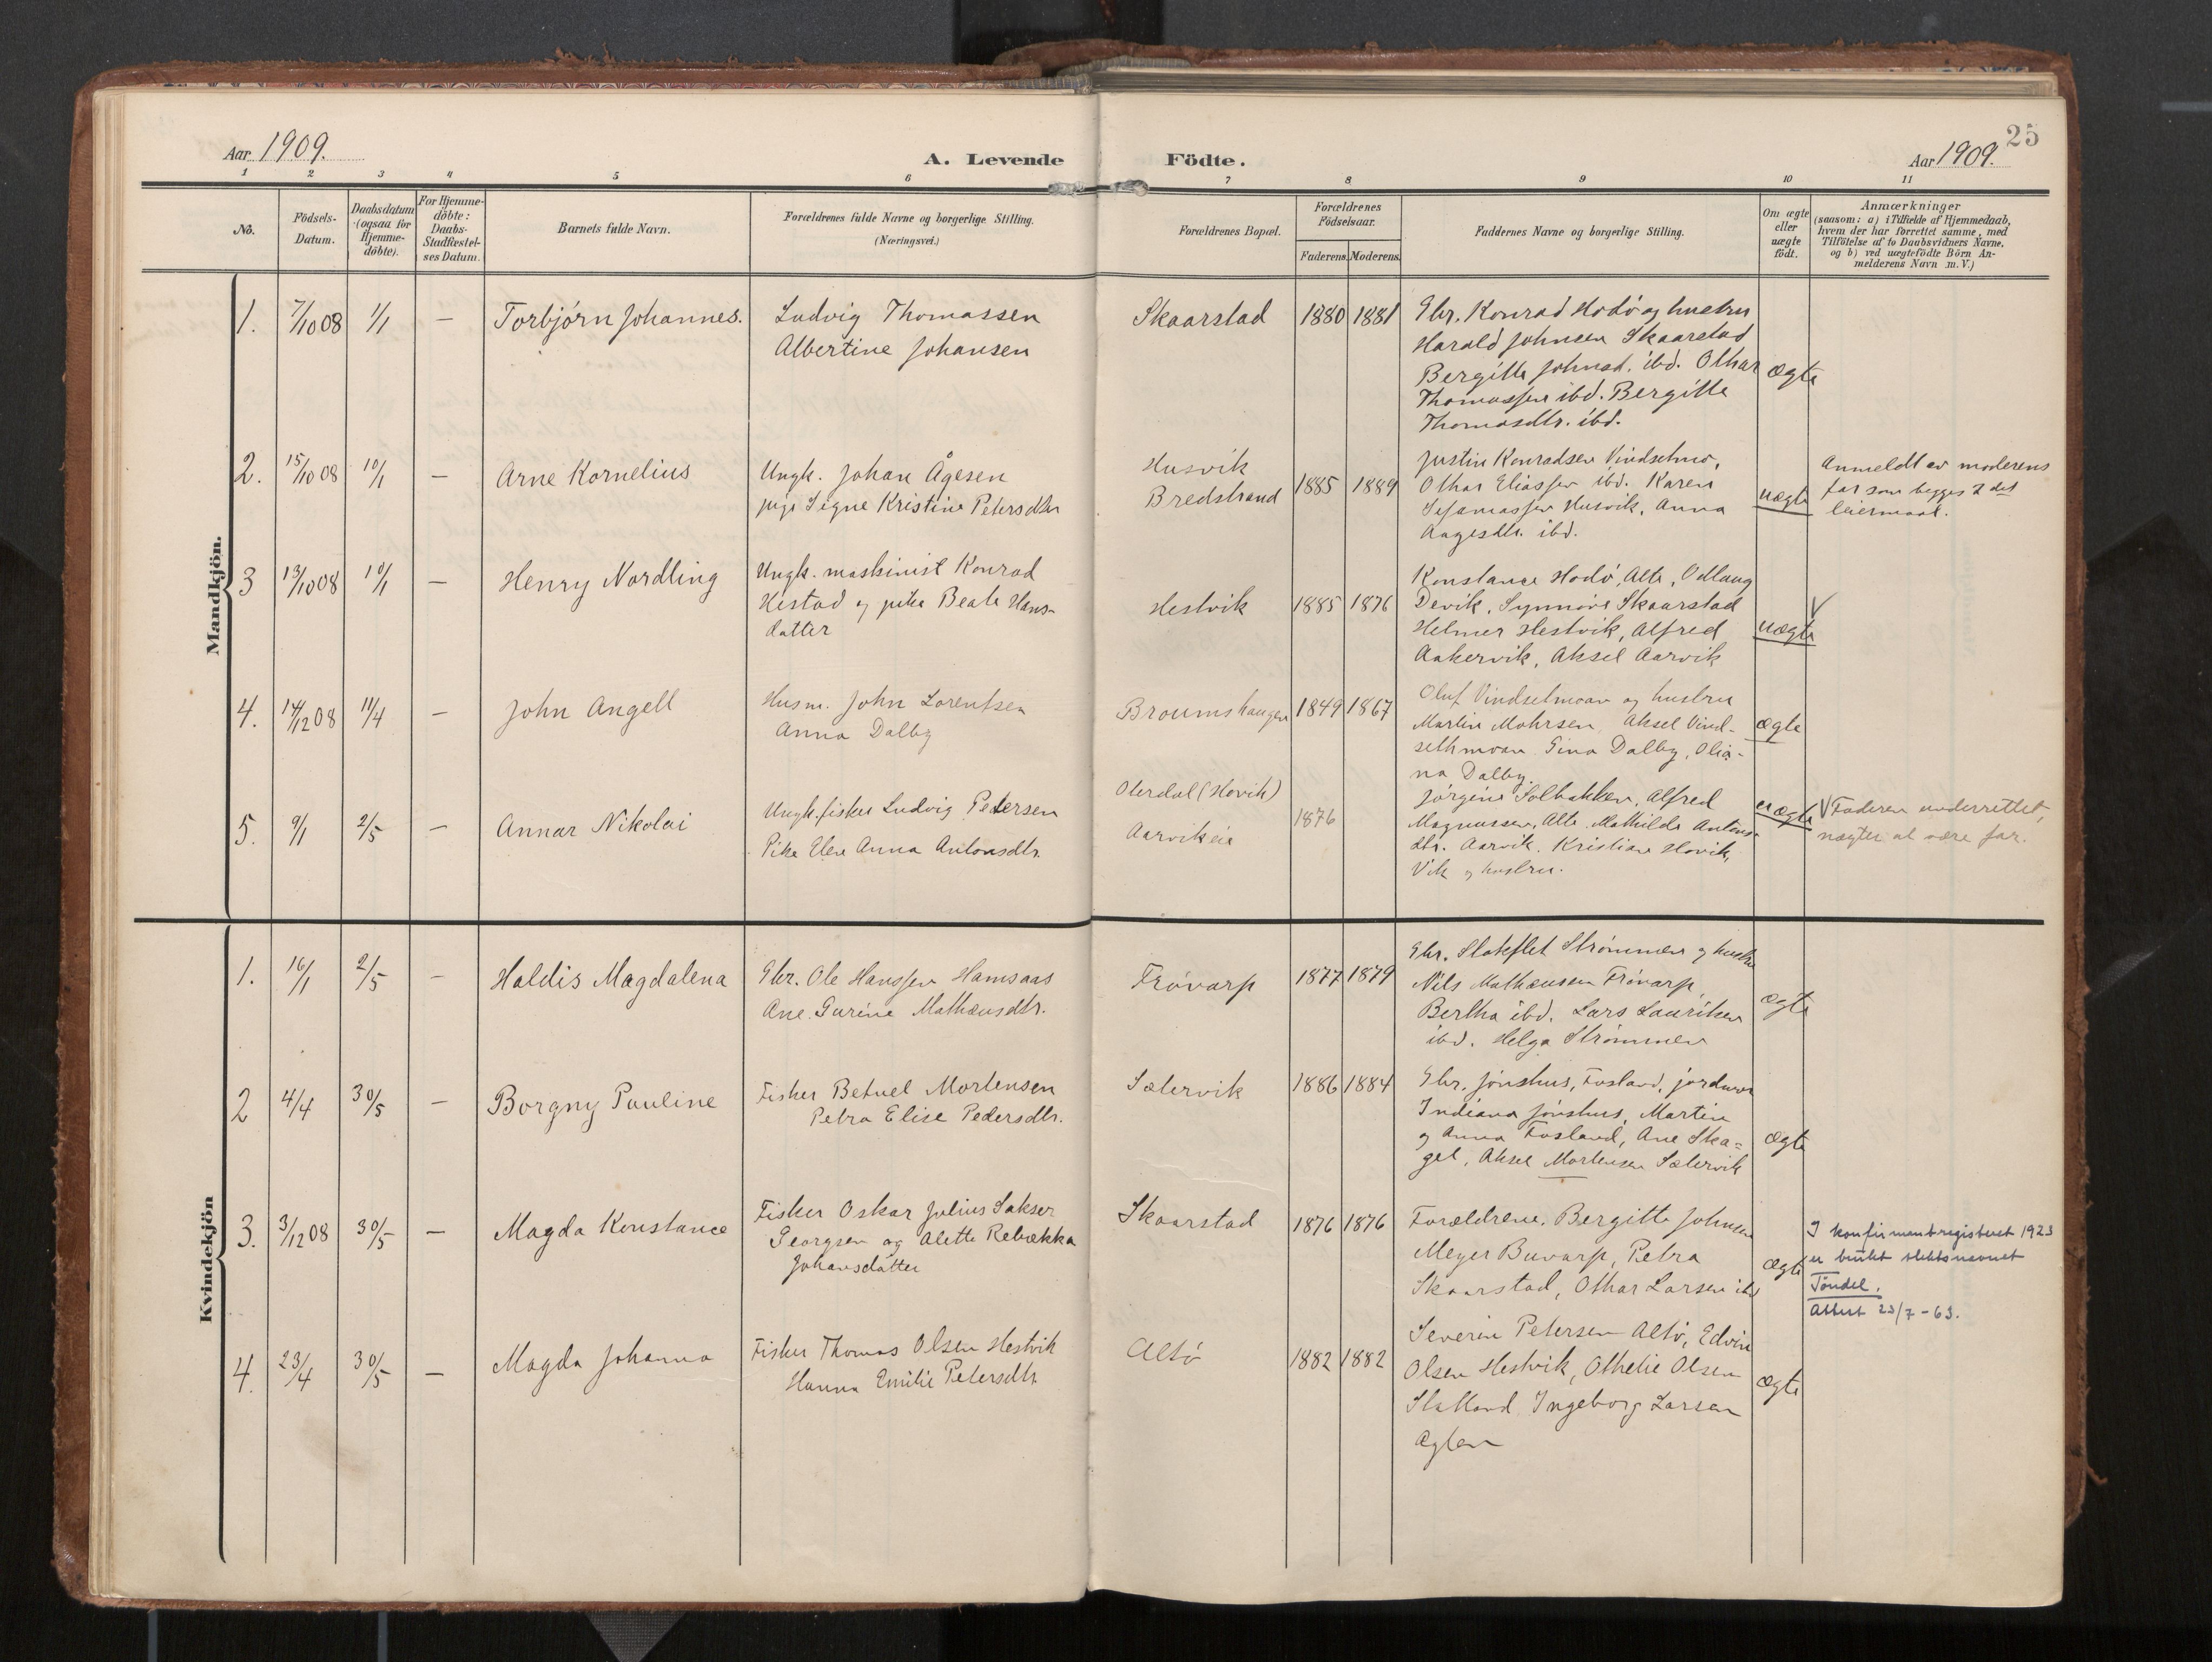 25
Aar 1909.
A. Levende Födte.
Aar 1909.
1 2 3 4 5 6 7 8 9 10 11
No.
Födsels-
Datum.
Daabsdatum
(ogsaa for
Hjemme-
döbte).
For Hjemme-
döbte:
Daabs-
Stadfæstel-
ses Datum.
Barnets fulde Navn.
Forældrenes fulde Navne og borgerlige Stilling.
(Næringsvei.)
Forældrenes Bopæl.
Forældrenes
Födselsaar.
Faderens. Moderens.
Faddernes Navne og borgerlige Stilling.
Om ægte
eller
uægte
födt.
Anmærkninger
(saasom: a) i Tilfælde af Hjemmedaab,
hvem der har forrettet samme, med
Tilföielse af to Daabsvidners Navne,
og b) ved uægtefödte Börn An-
melderens Navn m. V.)
Mandkjön.
1. 7/10 08 1/1 — Torbjørn Johannes.
Ludvig Thomassen
Albertine Johansen
Skaarstad 1880 1881
Gbr. Konrad Hodø og hustru
Harald Johnsen Skaarstad
Bergitte Johnsd. ibd. Othar
Thomassen ibd. Bergitte
Thomasdtr. ibd.
ægte
2. 15/10 08 10/1 — Arne Kornelius
Ungk. Johan Ågesen
pige Signe Kristine Petersdtr
Husvik
Bredstrand
1885 1889
Justin Konradsen Vindsetmo,
Othar Eliassen ibd. Karen
Husvik, Anna
Aagesdtr. ibd.
uægte
Anmeldt av moderens
far som begges 2det
leiermaal.
3 13/10 08 10/1 — Henry Nordling
Ungk. maskinist Konrad
Hestad og pike Beate Hans-
datter
Hestvik 1885 1876
Konstance Hodø, Alte, Odlaug
Devik, Synnøve Skaarstad
Helmer Hestvik, Alfred
Aakervik, Aksel Aarvik
uægte
V
4. 14/12 08 11/4 — John Angell
Husm. John Lorentsen
Anna Dalby
Broumshaugen 1849 1867
Oluf Vindsetmoan og hustru
Martin Mohrsen, Aksel Vind-
sethmoan Gina Dalby, Olia-
na Dalby.
ægte
5. 9/1 2/5 — Annar Nikolai
Ungk. fisker Ludvig Petersen
Pike Elen Anna Antonsdtr.
Oterdal (Hovik)
Aarvikeie
1876
Jørgine Solbakken, Alfred
Magnussen, Alte Mathilde Antons-
dtr. Aarvik. Kristian Hovik,
Vik og hustru.
uægte
V Faderen underrettet,
nægter at være far.
Kvindekjön
1. 16/1 2/5 — Haldis Magdalena
Gbr. Ole Hanssen Hamsaas
Ane Gurine Mathæusdtr.
Frøvarp 1877 1879
Gbr. Strømmen og hustru
Nils Mathæusen Frøvarp
Bertha ibd. Lars Lauritsen
ibd. Helga Strømmen
ægte
2 4/4 30/5 — Borgny Pauline
Fisker Betuel Mortensen
Petra Elise Pedersdtr.
Sætervik 1886 1884
Gbr. Jønshus, Fosland, jordmor
Indiana Jønshus, Martin
og Anna Fosland, Ane Ska-
gel, Aksel Mortensen Sætervik
ægte
3. 3/12 08 30/5 — Magda Konstance
Fisker Oskar Julius Sakser
Georgsen og Alette Rebækka
Johansdatter
Skaarstad 1876 1876
Forældrene. Bergitte Johnsen
Meyer Buvarp, Petra
Skaarstad, Othar Larsen ibd
ægte
I konfirmantregisteret 1923
er brukt slektsnavnet
Tøndel.
Attest 23/7 - 63.
4. 23/4 30/5 — Magda Johanna
Fisker Thomas Olsen Hestvik
Hanna Emilie Petersdtr
Altø 1882 1882
Severin Petersen Altø, Edvin
Olsen Hestvik, Othelie Olsen
Statland, Ingeborg Larsen
Aglen
ægte